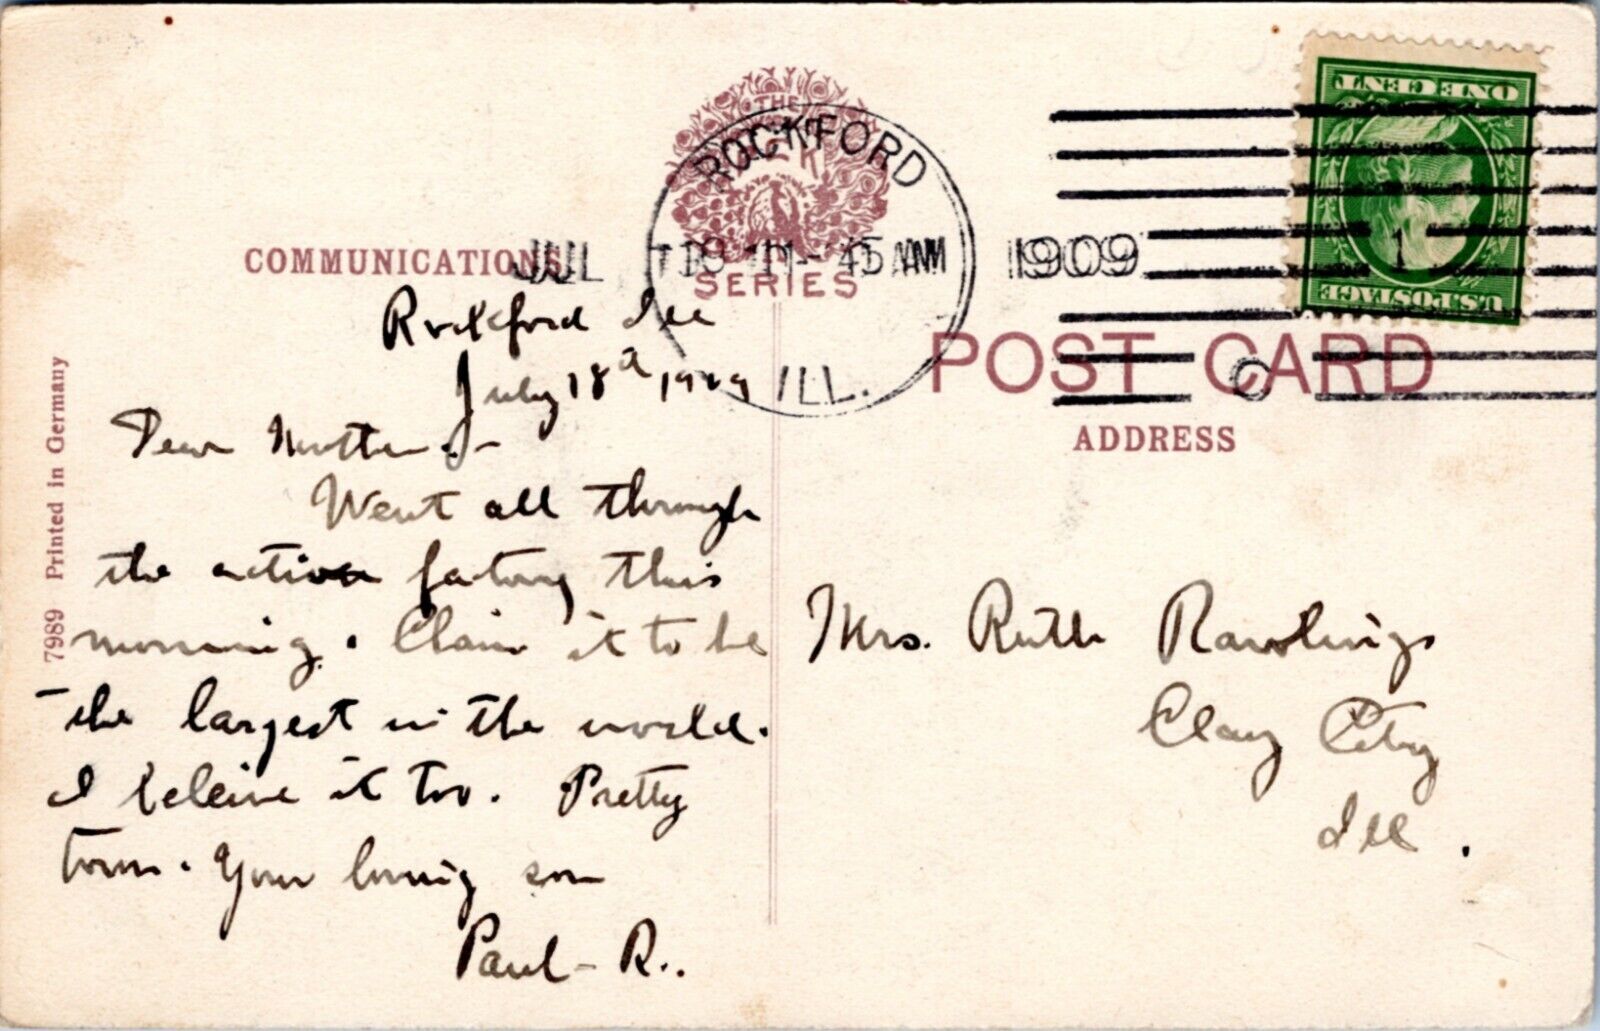 THE
SERIES
ROCKFORD
JUL 18 11-45 AM 1909
ILL.
ONE CENT
1
U.S. POSTAGE
COMMUNICATIONS
POST CARD
ADDRESS
7989 Printed in Germany
Rockford Ill
July 18th 1909
Dear Mother :-
Went all through
the factory this
morning. Claim it to be
the largest in the world.
I beleive it too. Pretty
town. Your loving son
Paul - R..
Mrs. Ruth Rawlings
Clay City
Ill.